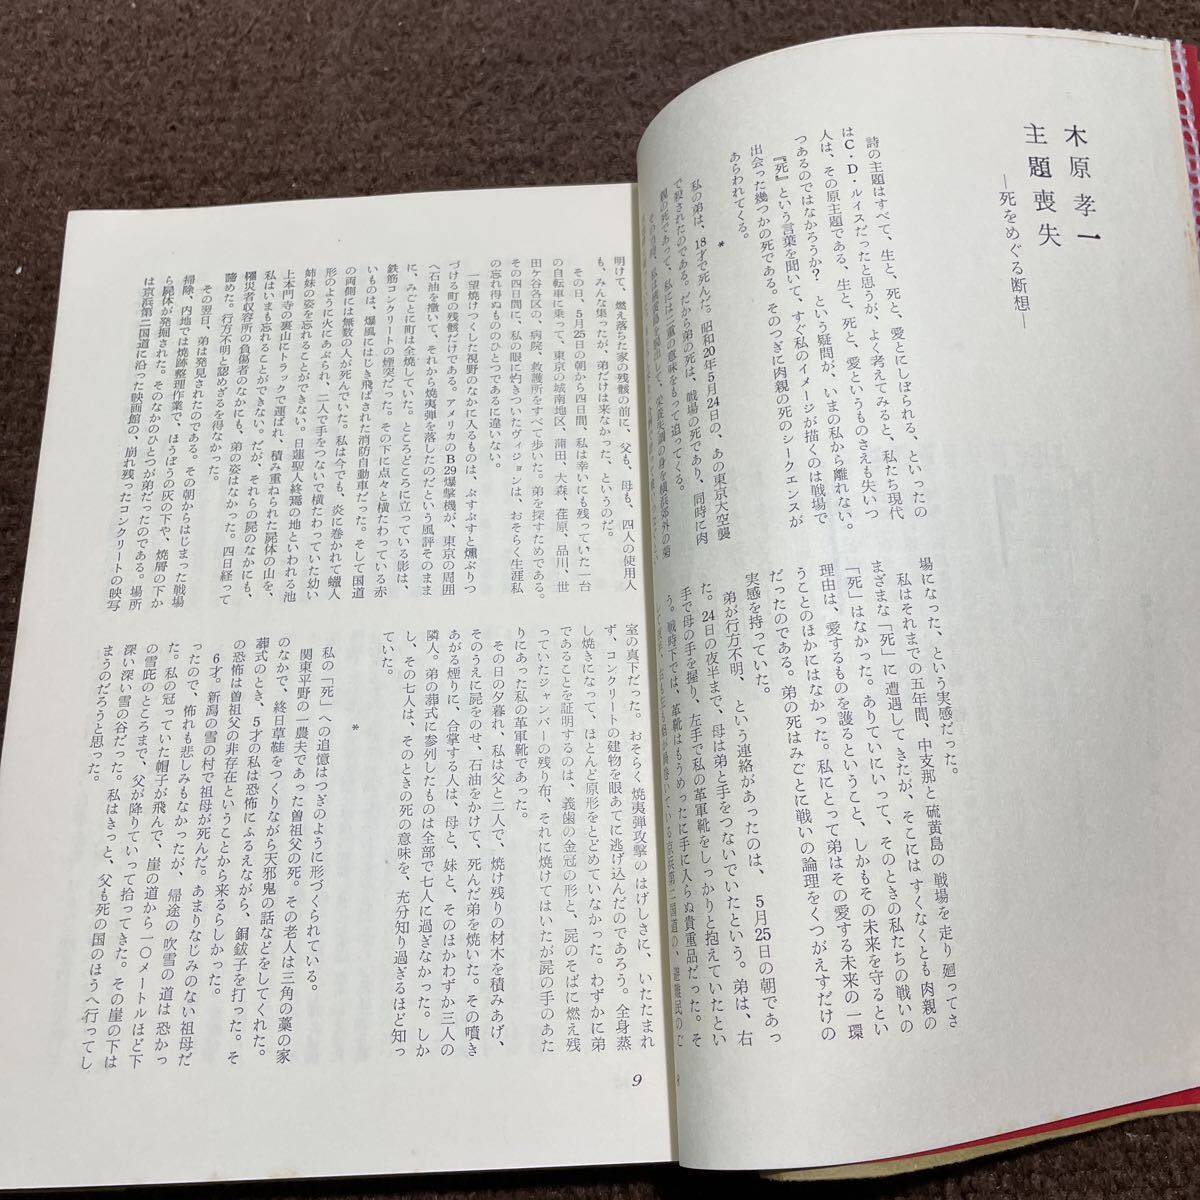 木原孝一
主題喪失
―死をめぐる断想―
詩の主題はすべて、生と、死と、愛とにしぼられる、といったの
はC・D・ルイスだったと思うが、よく考えてみると、私たち現代
人は、その原主題である、生と、死と、愛というものさえも失いつ
つあるのではなかろうか? という疑問が、いまの私から離れない。
『死』という言葉を聞いて、すぐ私のイメージが描くのは戦場で
出会った幾つかの死である。そのつぎに肉親の死のシークエンスが
あらわれてくる。
*
私の弟は、18才で死んだ。昭和20年5月24日の、あの東京大空襲
で殺されたのである。だから弟の死は、戦場の死であり、同時に肉
親の死であって、私には二重の意味をもって迫ってくる。
場になった、という実感だった。
私はそれまでの五年間、中支那と硫黄島の戦場を走り廻ってさ
まざまな「死」に遭遇してきたが、そこにはすくなくとも肉親の
「死」はなかった。ありていにいって、そのときの私たちの戦いの
理由は、愛するものを護るということ、しかもその未来を守るとい
うことのほかにはなかった。私にとって弟はその愛する未来の一環
だったのである。弟の死はみごとに戦いの論理をくつがえすだけの
実感を持っていた。
弟が行方不明、という連絡があったのは、5月25日の朝であっ
た。24日の夜半まで、母は弟と手をつないでいたという。弟は、右
手で母の手を握り、左手で私の革軍靴をしっかりと抱えていたとい
う。戦時下では、革靴はもうめったに手に入らぬ貴重品だった。そ
8
明けて、燃え落ちた家の残骸の前に、父も、母も、四人の使用人
も、みんな集ったが、弟だけは来なかった、というのだ。
その日、5月25日の朝から四日間、私は幸いにも残っていた一台
の自転車に乗って、東京の城南地区、蒲田、大森、荏原、品川、世
田ケ谷各区の、病院、救護所をすべて歩いた。弟を探すためである。
その四日間に、私の眼に灼きついたヴィジョンは、おそらく生涯私
の忘れ得ぬもののひとつであるに違いない。
一望焼けつくした視野のなかに入るものは、ぶすぶすと燻ぶりつ
づける町の残骸だけである。アメリカのB29爆撃機が、東京の周囲
へ石油を撒いて、それから焼夷弾を落したのだという風評そのまま
に、みごとに町は全焼していた。ところどころに立っている影は、
鉄筋コンクリートの煙突だった。その下に点々と横たわっている赤
いものは、爆風にはじき飛ばされた消防自動車だった。そして国道
の両側には無数の人が死んでいた。私は今でも、炎に巻かれて蠟人
形のように火にあぶられ、二人で手をつないで横たわっていた幼い
姉妹の姿を忘れることができない。日蓮聖人終焉の地といわれる池
上本門寺の裏山にトラックで運ばれ、積み重ねられた屍体の山を、
私はいまも忘れることができない。だが、それらの屍のなかにも、
罹災者収容所の負傷者のなかにも、弟の姿はなかった。四日経って
諦めた。行方不明と認めざるを得なかった。
その翌日、弟は発見されたのである。その朝からはじまった戦場
掃除、内地では焼跡整理作業で、ほうぼうの灰の下や、焼屑の下か
ら屍体が発掘された。そのなかのひとつが弟だったのである。場所
は京浜第二国道に沿った映画館の、崩れ残ったコンクリートの映写
室の真下だった。おそらく焼夷弾攻撃のはげしさに、いたたまれ
ず、コンクリートの建物を眼あてに逃げ込んだのであろう。全身蒸
し焼きになって、ほとんど原形をとどめていなかった。わずかに弟
であることを証明するのは、義歯の金冠の形と、屍のそばに燃え残
っていたジャンパーの残り布、それに焼けてはいたが屍の手のあた
りにあった私の革軍靴であった。
その日の夕暮れ、私は父と二人で、焼け残りの材木を積みあげ、
そのうえに屍をのせ、石油をかけて、死んだ弟を焼いた。その噴き
あがる煙りに、合掌する人は、母と、妹と、そのほかわずか三人の
隣人。弟の葬式に参列したものは全部で七人に過ぎなかった。しか
し、その七人は、そのときの死の意味を、充分知り過ぎるほど知っ
ていた。
*
私の「死」への追憶はつぎのように形づくられている。
関東平野の一農夫であった曽祖父の死。その老人は三角の藁の家
のなかで、終日草鞋をつくりながら天邪鬼の話などをしてくれた。
葬式のとき、5才の私は恐怖にふるえながら、銅鈸子を打った。そ
の恐怖は曽祖父の非存在ということから来るらしかった。
6才。新潟の雪の村で祖母が死んだ。あまりなじみのない祖母だ
ったので、怖れも悲しみもなかったが、帰途の吹雪の道は恐かっ
た。私の冠っていた帽子が飛んで、崖の道から一〇メートルほど下
の雪庇のところまで、父が降りていって拾ってきた。その崖の下は
深い深い雪の谷だった。私はきっと、父も死の国のほうへ行ってし
まうのだろうと思った。
9